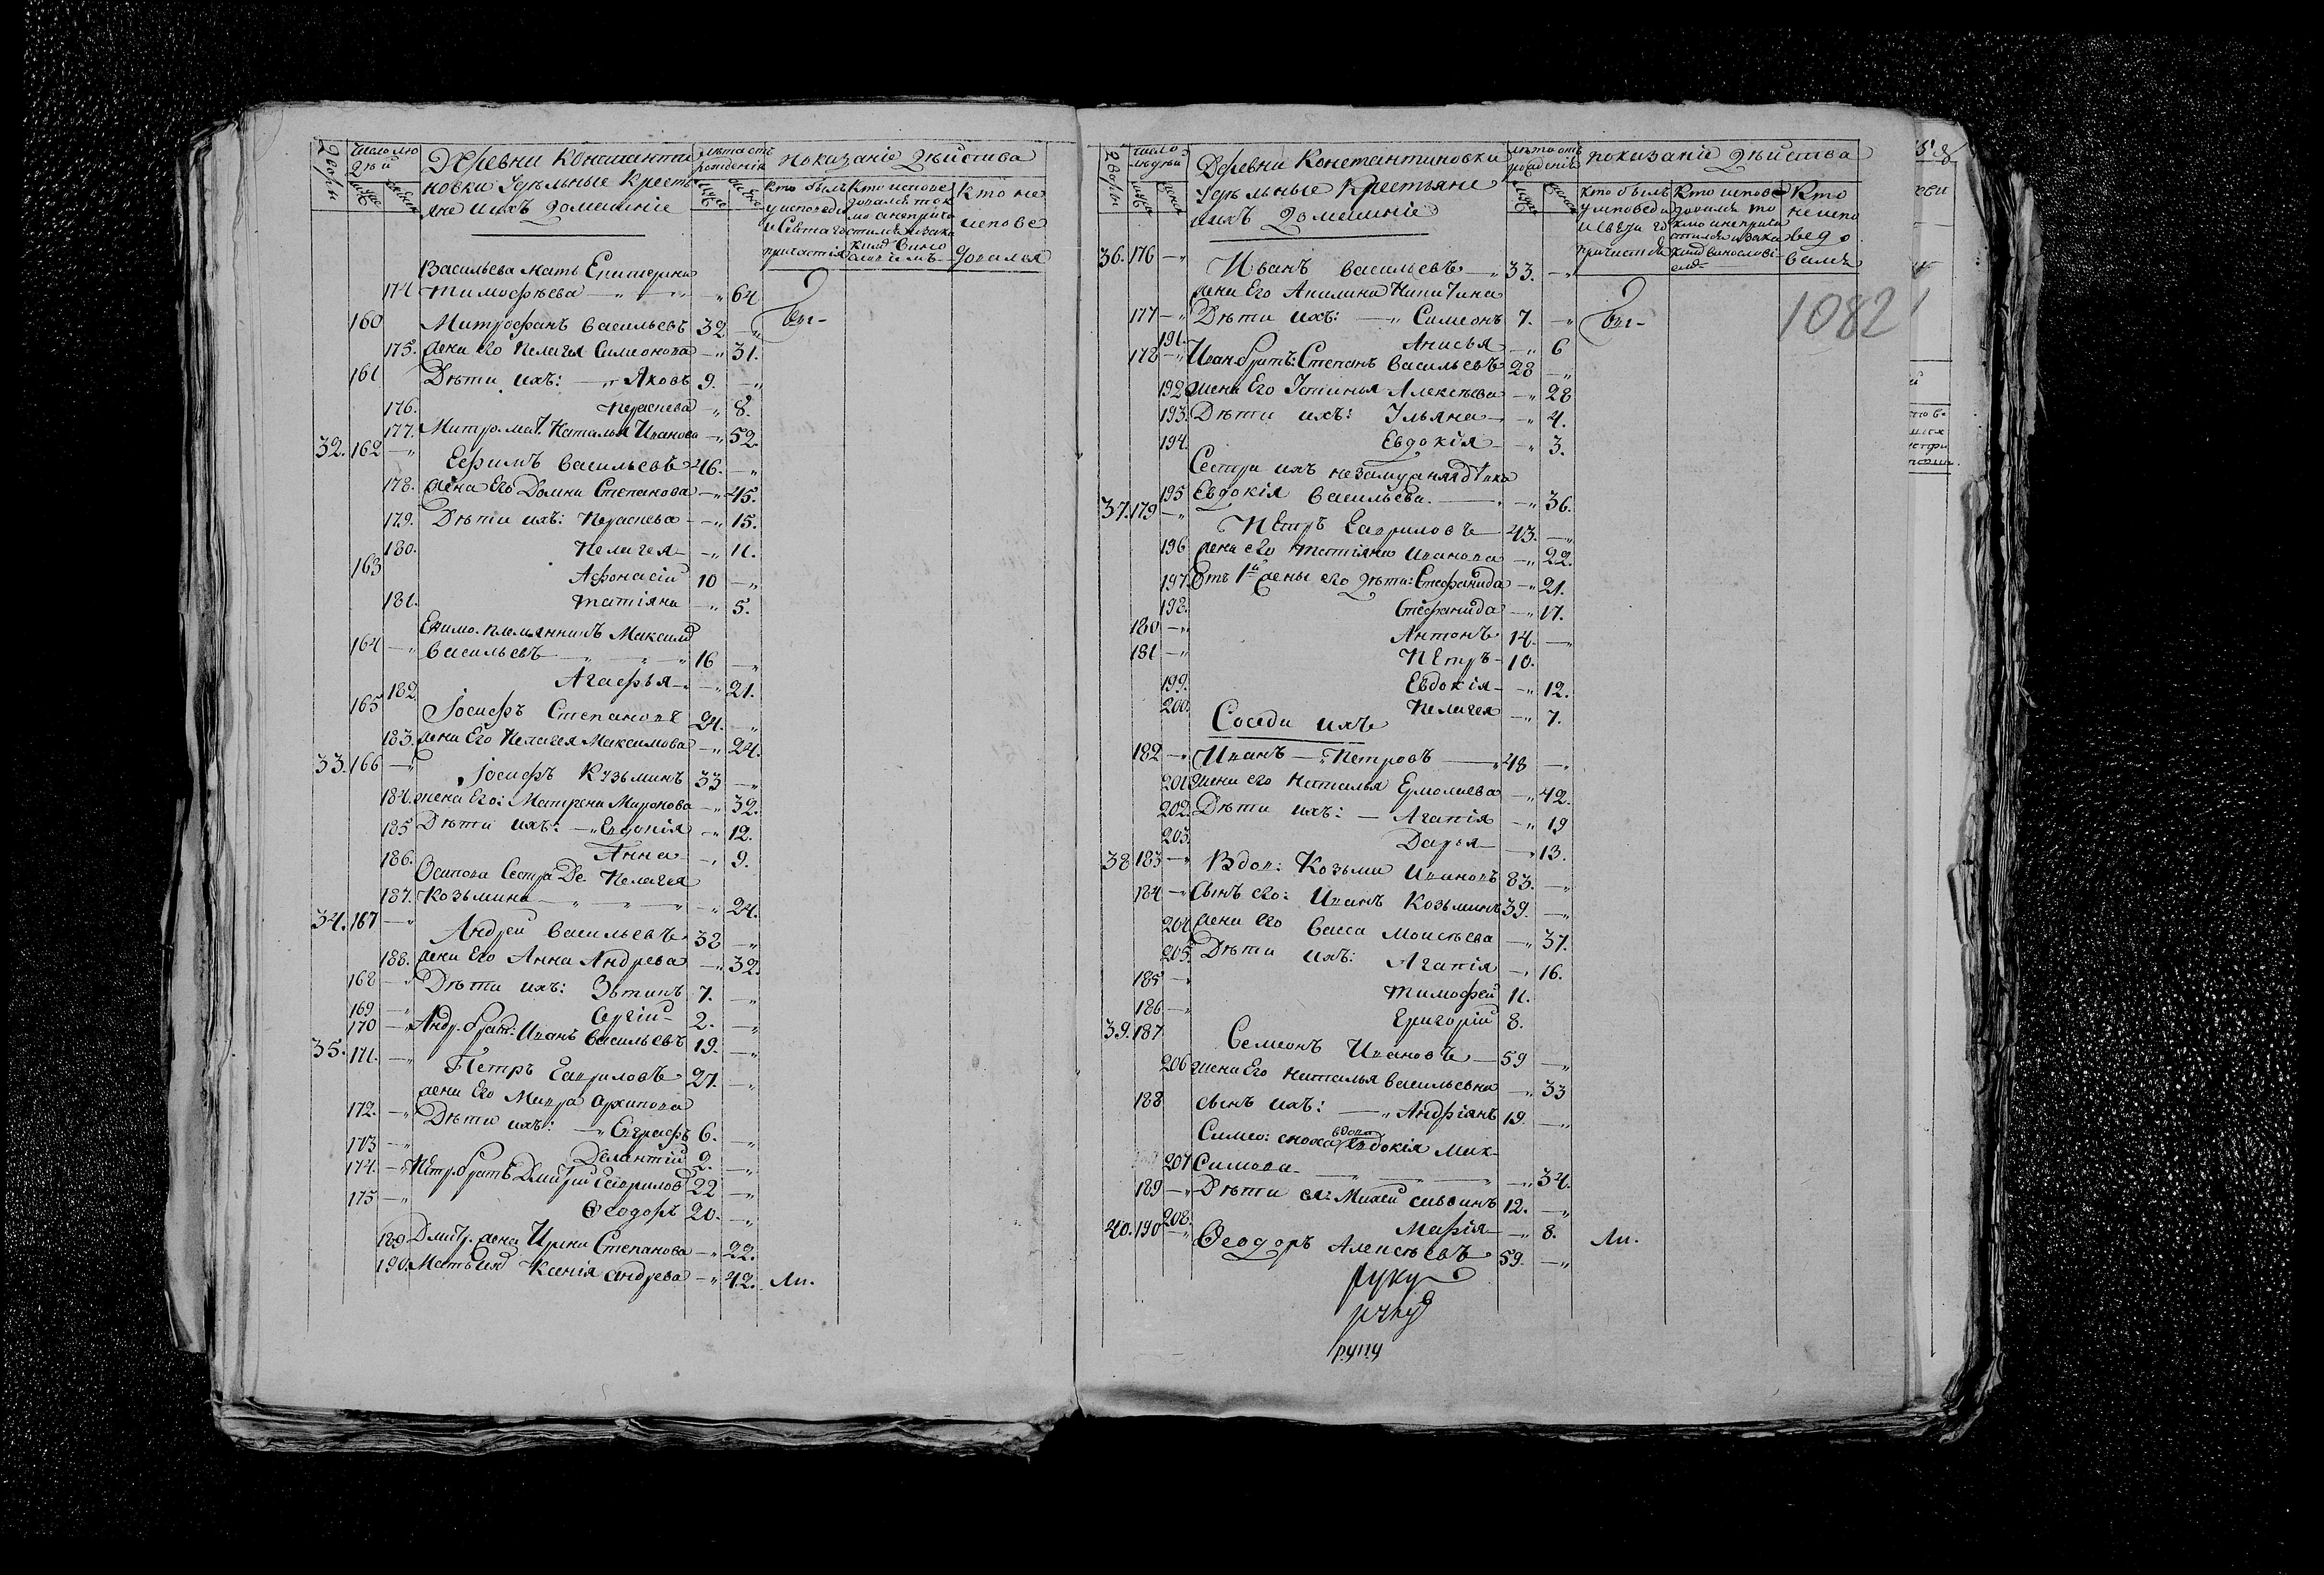 Дворы
Число людей
Деревни Константи
Лета отъ рождения
показаніе действа
муж
женск
новки Удѣльные Кресть
яне ихъ домашніе
Кто былъ у исповеди и Святаго причастія
Кто исповедовался токмо а непричастился и за какимъ винословіемъ
Кто не исповедовался
Васильева мать Екатерина
174 Тимофѣева 64
160 Митрофанъ Васильевъ 32
175. жена его Пелагея Симеонова 31.
161 Дѣти ихъ: Яковъ 9.
176. Параскева 8.
177. Митро. мат. Наталья Иванова 52
32. 162 Ефимъ Васильевъ 46.
178. жена Его Домна Степанова 45.
179. Дѣти ихъ: Параскева 15.
180. Пелагея 11.
163 Афонасій 10
181. Татіяна 5.
Ефимо. племянникъ Максимъ
164 Васильевъ 16
182 Агафья 21.
165 Іосифъ Степановъ 24.
183. жена Его Пелагея Максимова 24.
33. 166 Іосифъ Кузьминъ 33
184. жена Его: Матрена Миронова 32.
185 Дѣти ихъ: Евдокія 12.
186. Анна 9.
Осипова Сестра Де. Пелагея
187. Козьмина 24.
34. 167 Андрей Васильевъ 32
188. жена Его Анна Андрева 32.
168 Дѣти ихъ: 7.
169 Сергій 2.
170 Андр. братъ: Иванъ Васильевъ 19.
35. 171. Петръ Гавриловъ 27.
жена Его Мавра Архипова
172. Дѣти ихъ: Евграфъ 6.
173 2.
174. Петр. братъ Дмитрій Гавриловъ 22
175 Ѳеодоръ 20.
189 Дмитр. жена Ирина Степанова 22.
190. Мать ихъ Ксенія Андрева 42. Ли.
Был-
Дворы
Число людей
Деревни Константиновки
Лета отъ рожденія
показаніе действа
муж
женск
Удѣльные Крестьяне
ихъ домашніе
Кто былъ у исповеди и святаго причастія
Кто исповедовался токмо и непричастился и за какимъ винословіемъ
Кто не исповедовался
36. 176 Иванъ Васильевъ 33.
жена Его Акилина Никитина
177 Дѣти ихъ: Симеонъ 7.
191. Анисья 6
178 Иван. братъ: Степанъ Васильевъ 28
192 жена Его Устинья Алексѣева 28
193. Дѣти ихъ: Ульяна 4.
194. Евдокія 3.
Сестра ихъ незамужняя дѣвка
195 Евдокія Васильева. 36.
37. 179 Петръ Гавриловъ 43.
196 жена его Татіяна Иванова 22.
197. Отъ 1й жены его дѣти: Стефанида 21.
198. Стефанида 17.
180 Антонъ 14.
181 Петръ 10.
199. Евдокія 12.
200. Пелагея 7.
Соседи ихъ
182 Иванъ Петровъ 48
201 жена его Наталья Ермолаева 42.
202. Дѣти ихъ: Агапія 19
203. Дарья 13.
38 183 Вдов: Козьма Ивановъ 83.
184 Сынъ его: Иванъ Козьминъ 39.
204 жена его Васса Моисѣева 37.
205. Дѣти ихъ: Агапія 16.
185 Тимофей 11.
186 Григорій 8.
39. 187 Семионъ Ивановъ 59
206 жена Его Наталья Васильевна 33
188 сынъ ихъ: Андріянъ 19.
Симео: сноха вдова Евдокія Мак-
207 симова 34.
189 Дѣти ея: 12.
208. Марія 8. Ли.
40. 190 Ѳеодоръ Алексѣевъ 59.
руку
руку
руку
Был-
1082